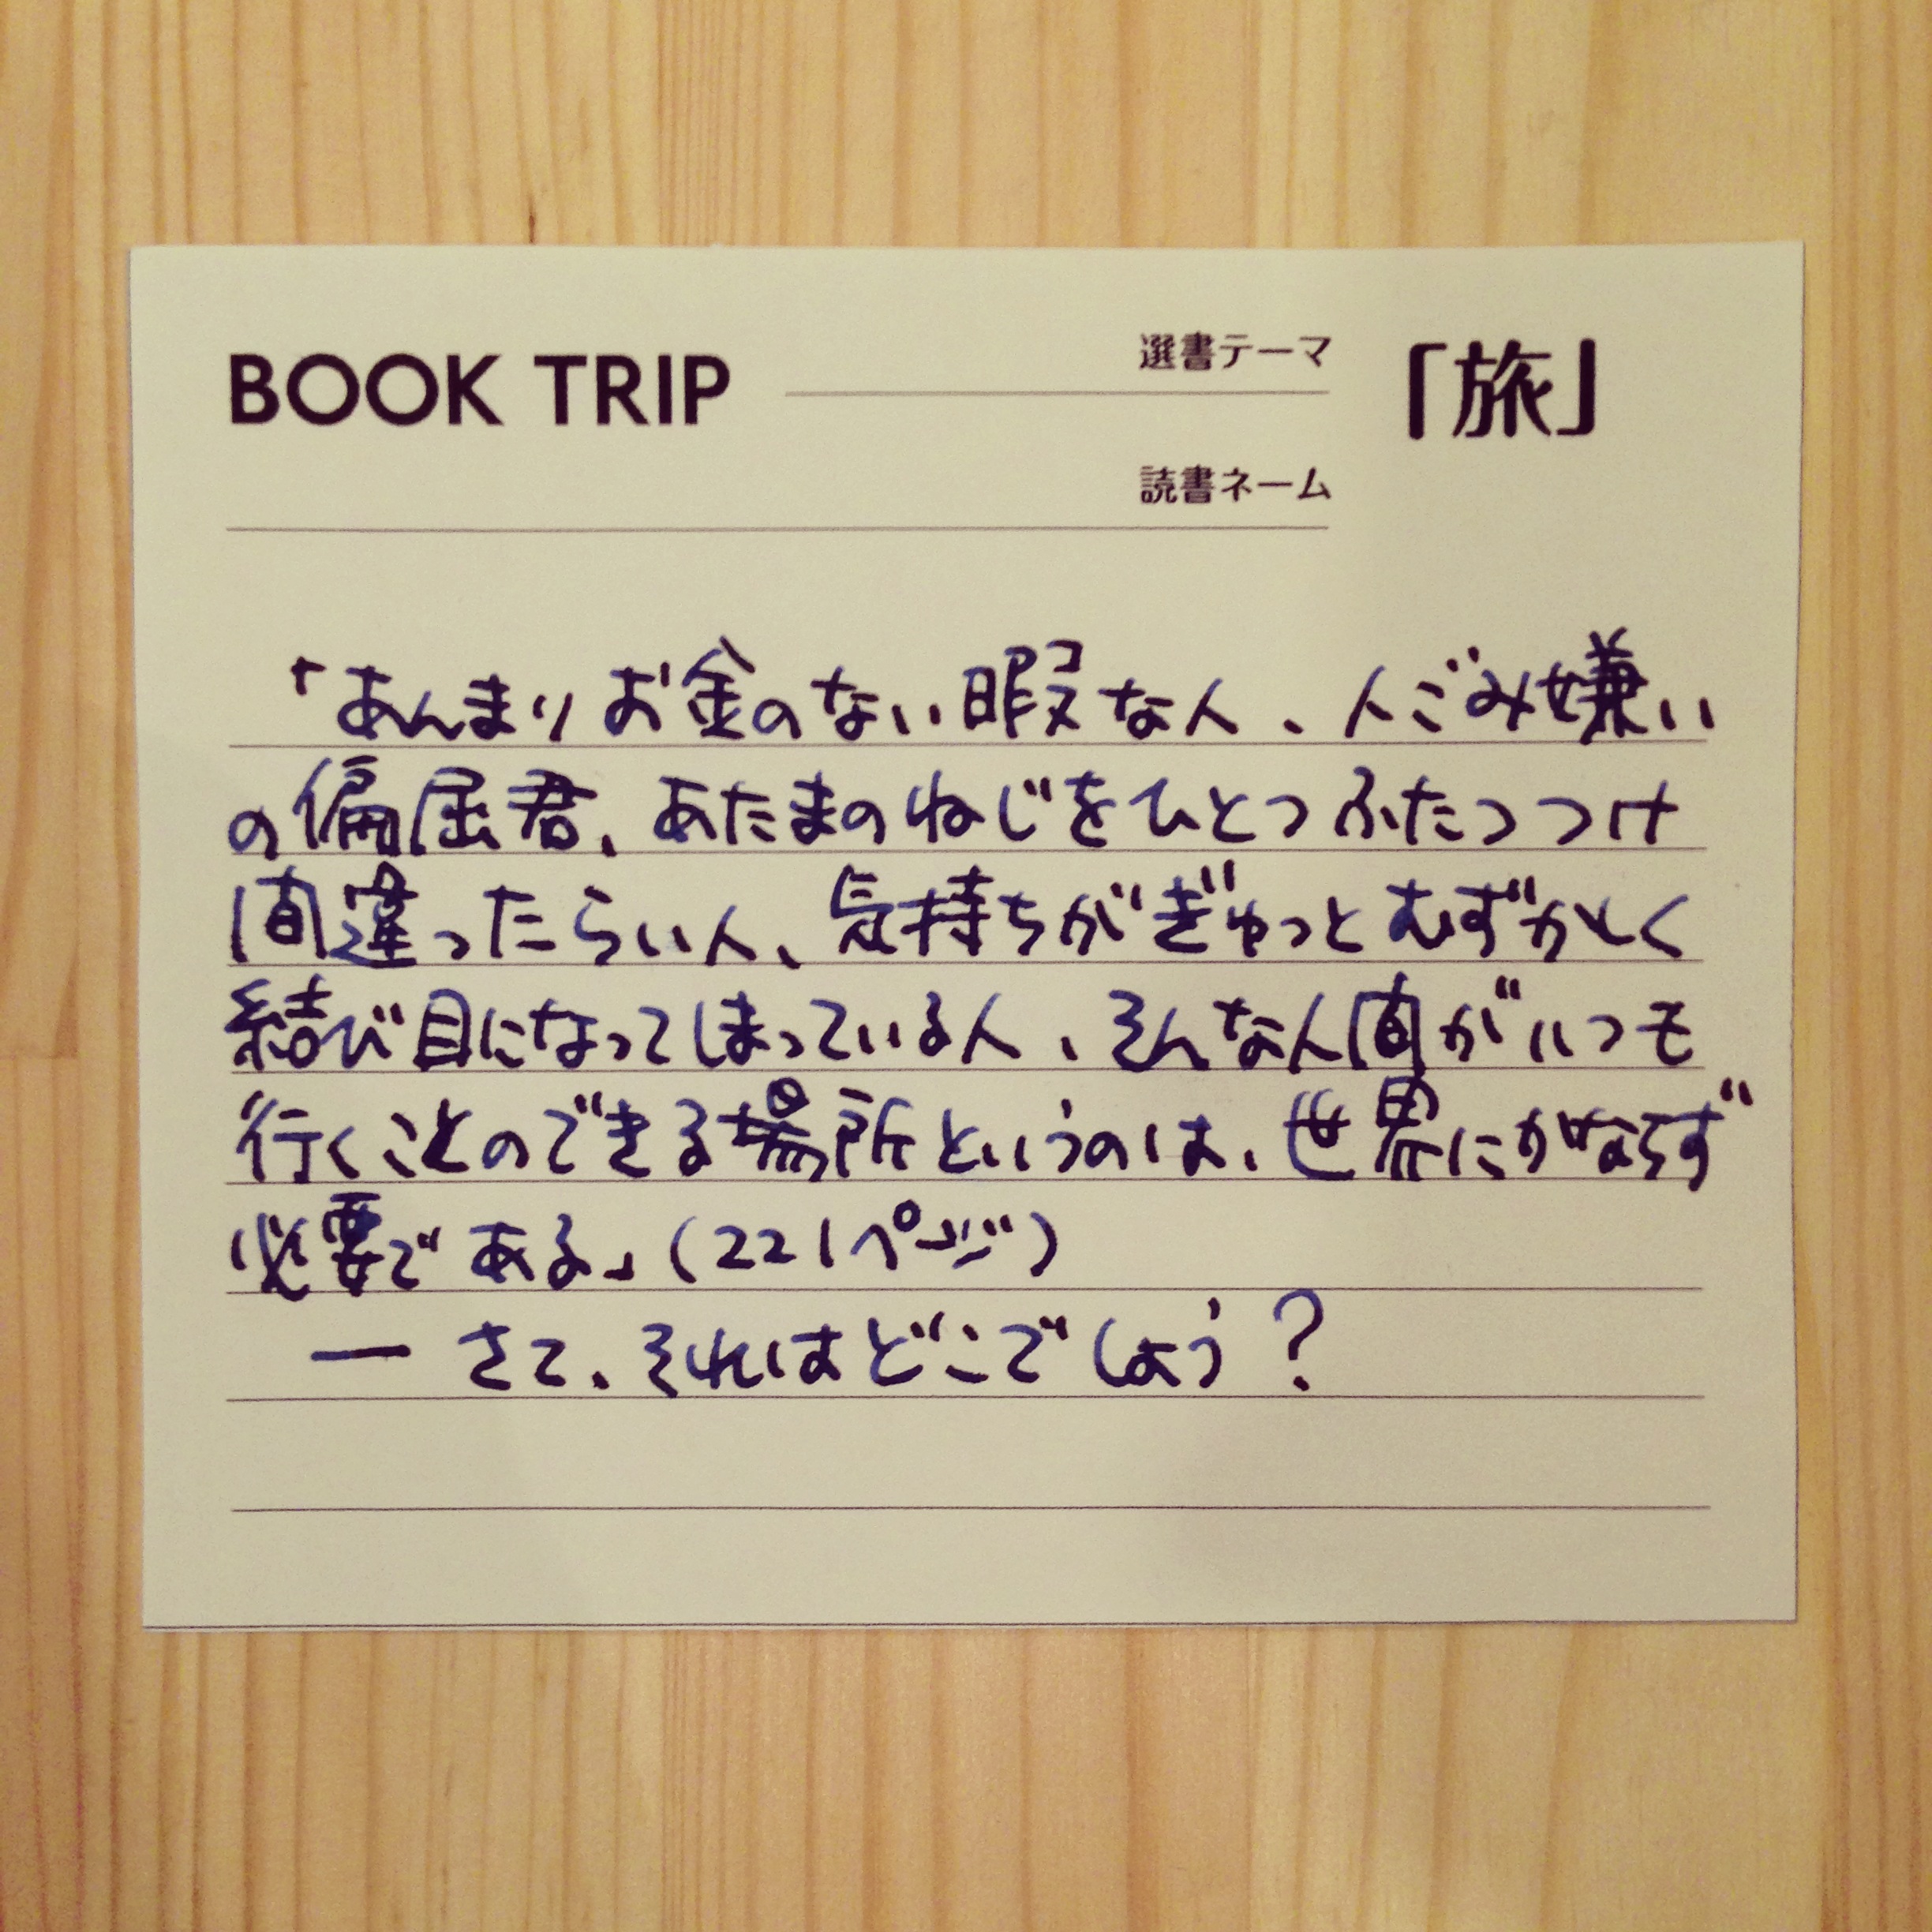 BOOK TRIP
選書テーマ
「旅」
読書ネーム
「あんまりお金のない暇な人、人ごみ嫌い
の偏屈君、あたまのねじをひとつふたつつけ
間違ったらい人、気持ちがぎゅっとむずかしく
結び目になってしまっている人、そんな人間がいつも
行くことのできる場所というのは、世界にかならず
必要である」(221ページ)
― さて、それはどこでしょう?